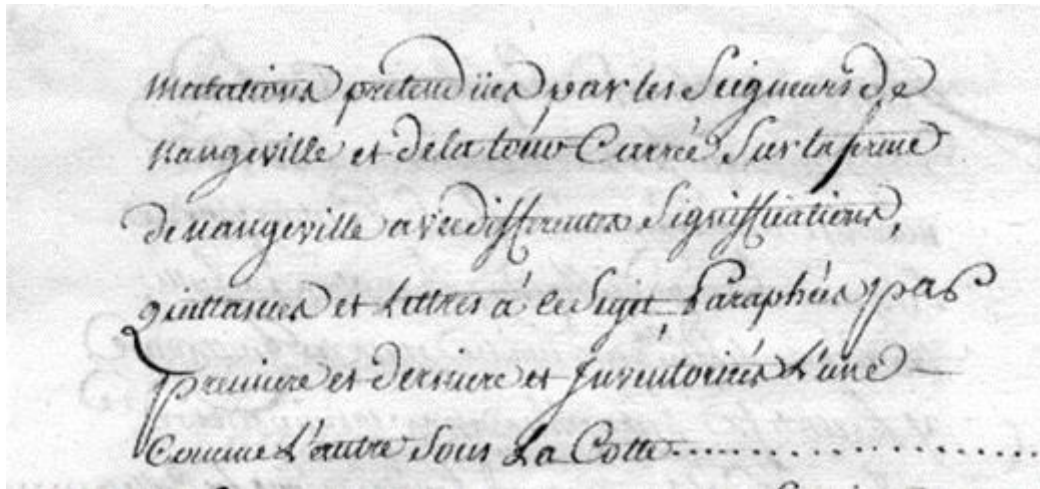 mutations pretendües par les Seigneurs de
Nangeville et de la tour Carrée Sur la ferme
de Nangeville avec differentes Significations,
quittances et Lettres à ce Sujet Paraphées par
premiere et derniere et Inventoriées L'une
Comme L'autre Sous La Cotte..............